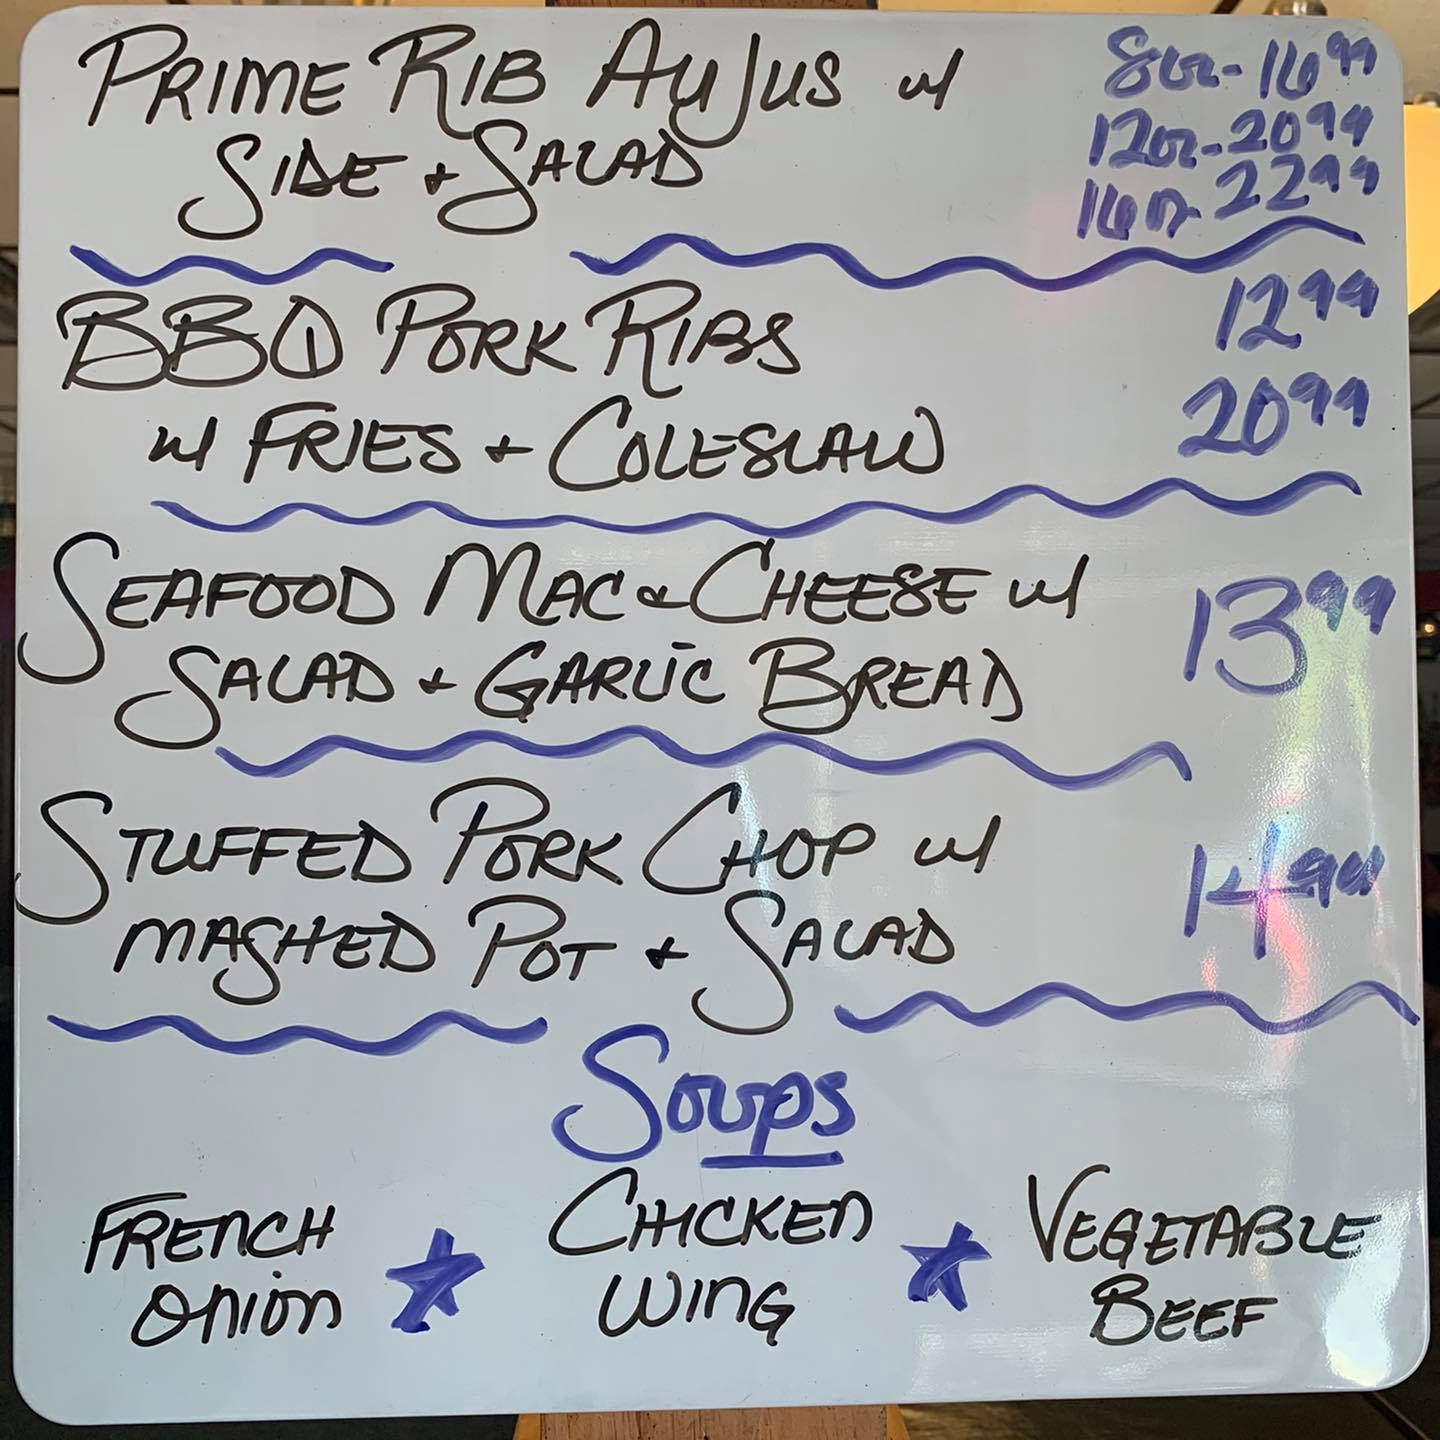 PRIME RIB AU JUS w/
8oz-16⁹⁹
SIDE + SALAD
12oz-20⁹⁹
16oz-22⁹⁹
BBQ PORK RIBS
12⁹⁹
w/ FRIES + COLESLAW
20⁹⁹
SEAFOOD MAC & CHEESE w/
13⁹⁹
SALAD + GARLIC BREAD
STUFFED PORK CHOP w/
14⁹⁹
MASHED POT + SALAD
Soups
FRENCH
ONION
CHICKEN
WING
VEGETABLE
BEEF